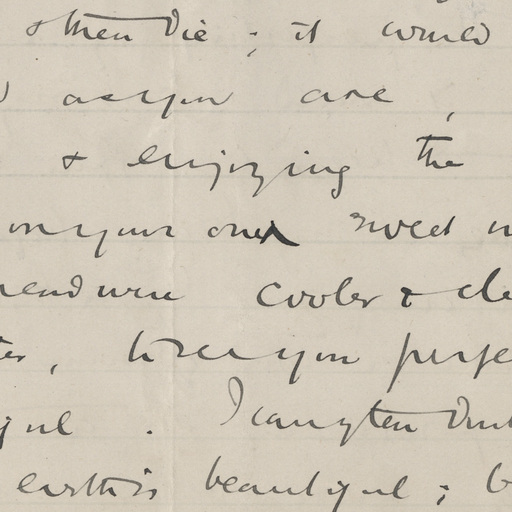 & then die ; it would
as you are ,
& enjoying the
on your own sweet
head were cooler & cle
ter, to see you perfe
iful . I can often
earth is beautiful ; b